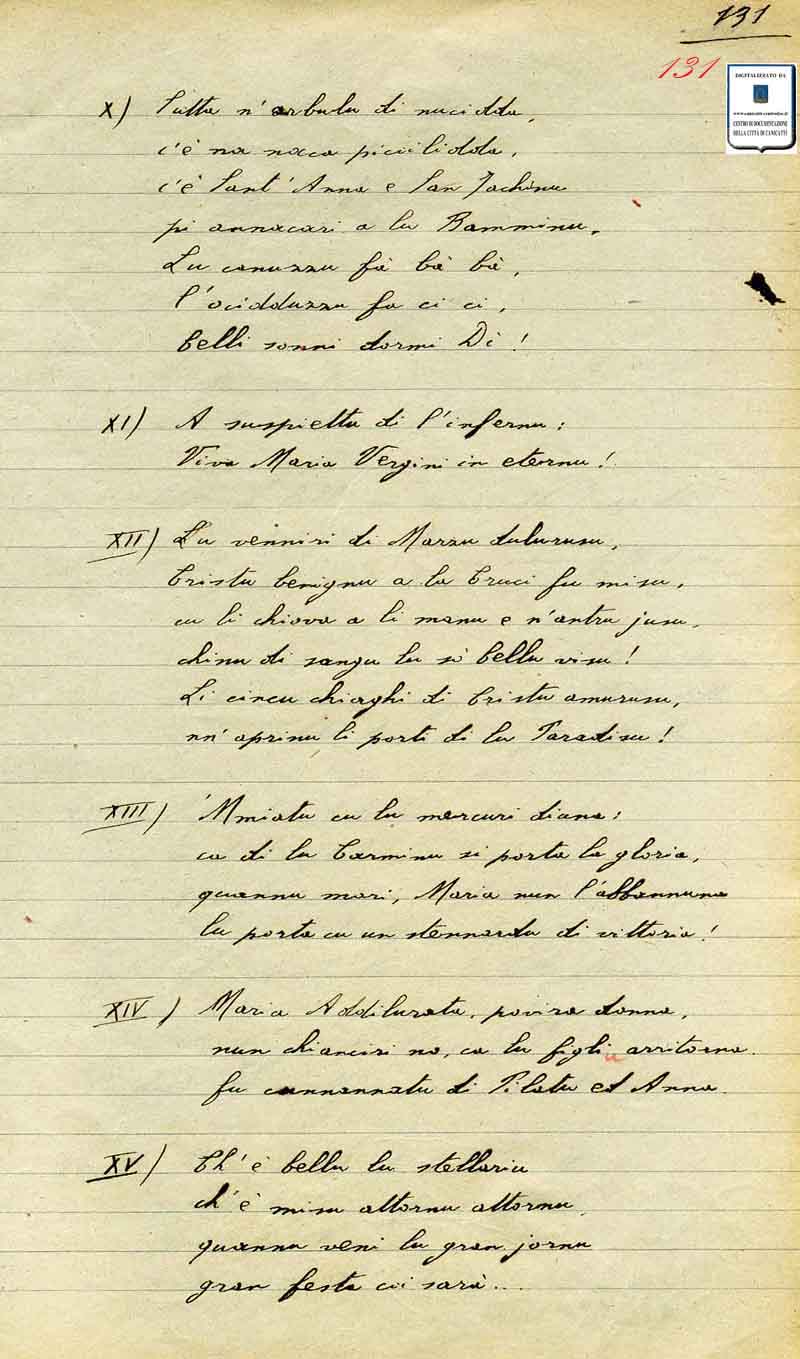 131
131
DIGITALIZZATO DA
CENTRO DI DOCUMENTAZIONE
DELLA CITTÀ DI CANICATTÌ
X) Sutta n'arbulu di nucidda,
c'è na naca piccilidda,
c'è Sant'Anna e San Jachinu
pi annacari a lu Bamminu.
Lu canuzzu fà bà bà,
l'ocidduzzu fa ci ci,
belli sonni dormi Di!
XI) A suspiettu di l'infernu:
Viva Maria Vergini in eternu!
XII) Lu venniri di Marzu dulurusu,
Cristu benignu a la Cruci fu misu,
cu li chiova a li manu e n'antru jusu,
chinu di sangu lu sò bellu visu!
Li cincu chiaghi di Cristu amurusu,
nn'aprinu li porti di lu Paradisu!
XIII) 'Mmiatu cu lu mercuri diana:
ca di lu Carminu si porta la gloria,
quannu mori, Maria nun l'abbannuna
lu porta cu un stennardu di vittoria!
XIV) Maria Addilurata, povira donna,
nun chianciri no, ca lu figliu arritorna.
fu cunnannatu di Pilatu ed Anna.
XV) Ch'è bellu lu stellariu
ch'è misu attornu attornu,
quannu veni lu gran jornu
gran festa cci sarà...